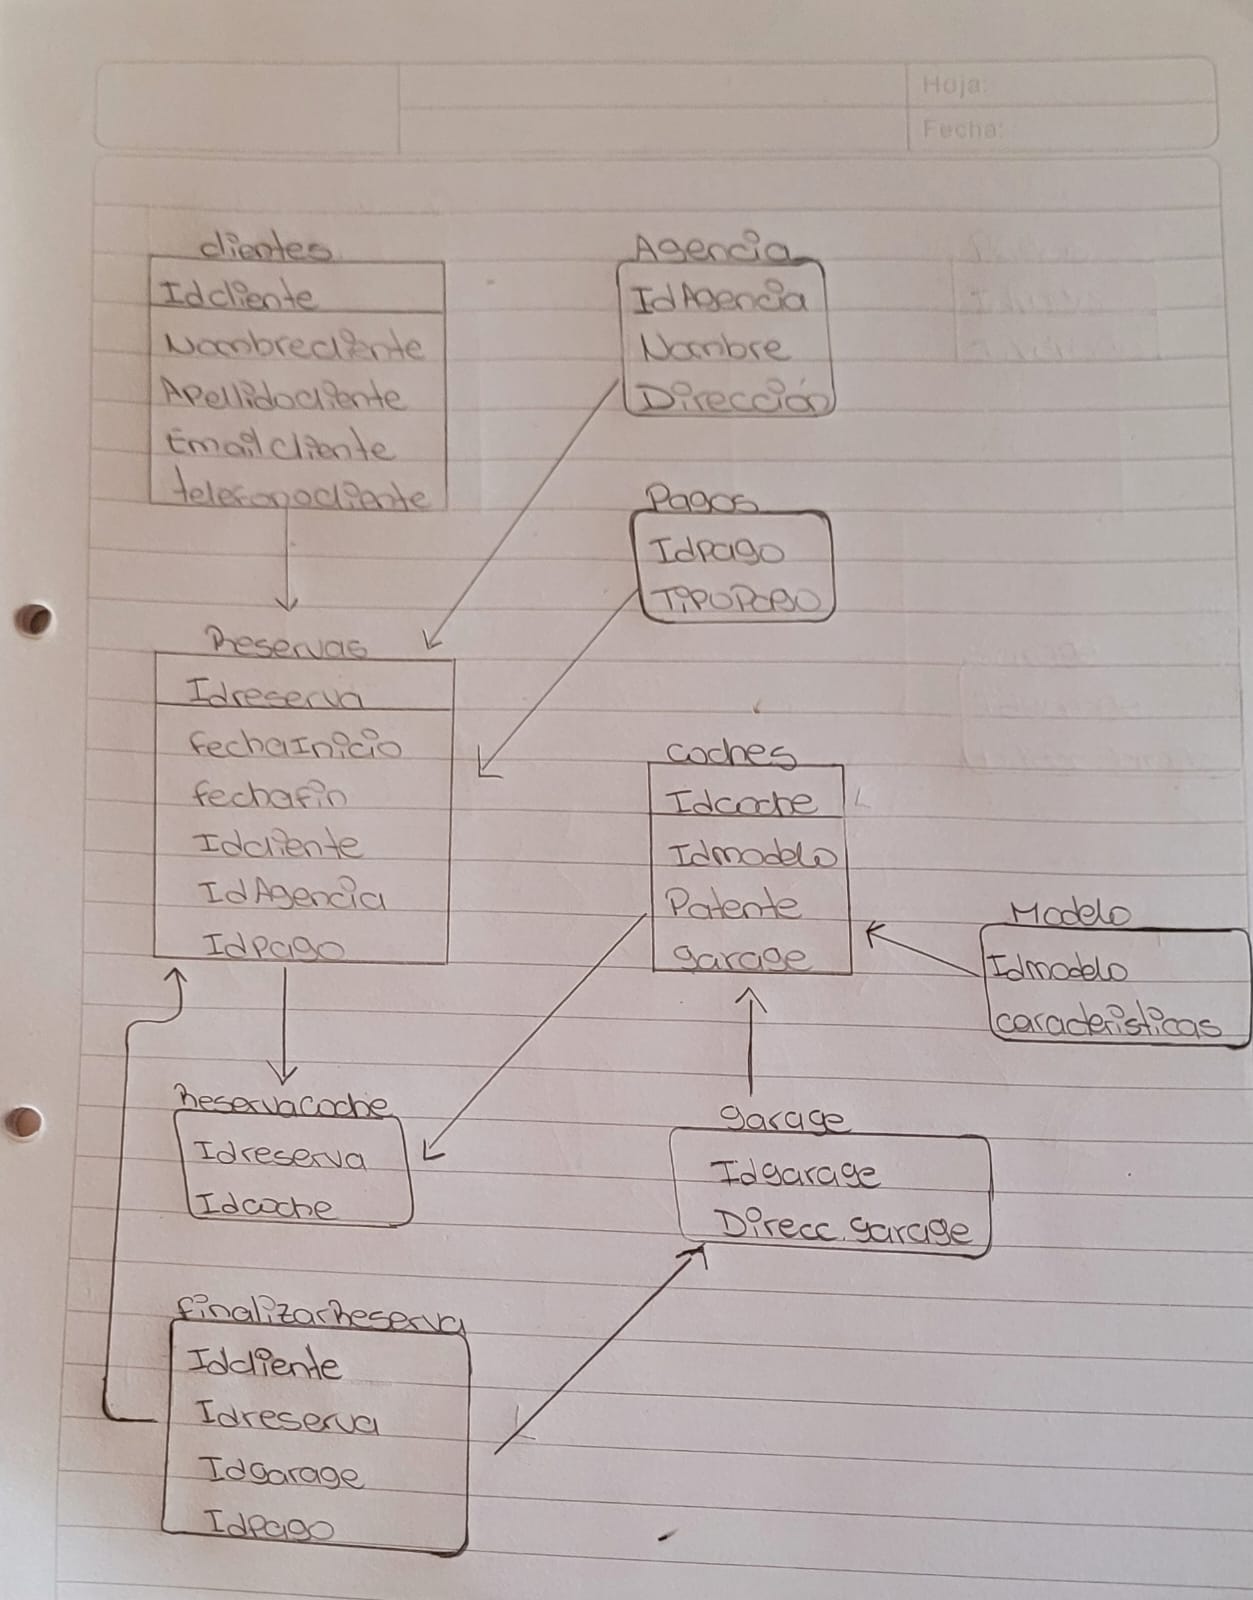 Hoja:
Fecha:
clientes
Idcliente
Nombrecliente
Apellidocliente
Emailcliente
telefonocliente
Agencia
IdAgencia
Nombre
Dirección
Pagos
Idpago
TipoPago
Reservas
Idreserva
fechaInicio
fechafin
Idcliente
IdAgencia
Idpago
coches
Idcoche
Idmodelo
Patente
garage
Modelo
Idmodelo
caracteristicas
Reservacoche
Idreserva
Idcoche
garage
Idgarage
Direcc.garage
finalizarReserva
Idcliente
Idreserva
Idgarage
Idpago